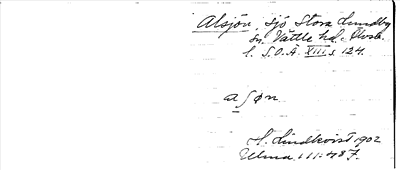 Alsjön, sjö Stora Lundby
sn. Vättle hd. Älvsb.
l. S.O.Ä. XIII s. 124.
a ʃøn
H. Lindkvist 1902
Ulma 111:48 F.